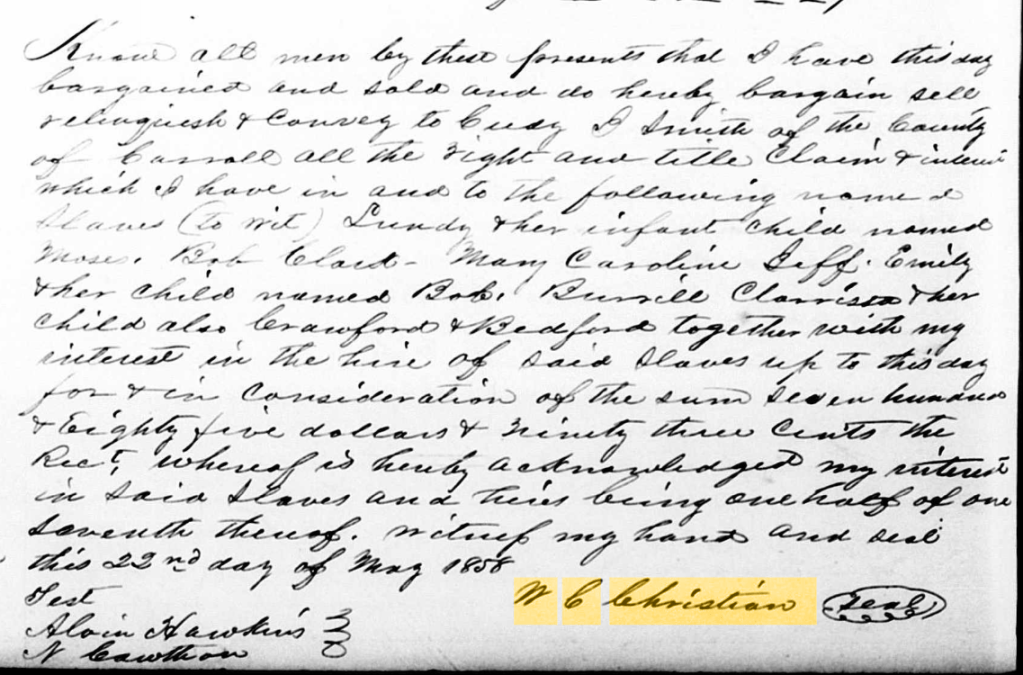 Know all men by these presents that I have this day
bargained and sold and do hereby bargain sell
relinquish & Convey to Cudy J Smith of the County
of Carroll all the right and title Claim & interest
which I have in and to the following named
Slaves (to wit) Lundy & her infant child named
Moses. Bob - Mary Caroline Jeff. Emily
& her child named Bob. Burrill Clarrissa & her
child also Crawford & Bedford together with my
interest in the hire of said slaves up to this day
for & in consideration of the sum seven hundred
& Eighty five dollars & ninety three Cents the
Rect, whereof is hereby acknowledged my interest
in said slaves and hires being one half of one
seventh thereof. Witness my hand and seal
this 22nd day of May 1858
W C Christian (Seal)
Test
Alvin Hawkins
N Cawthon